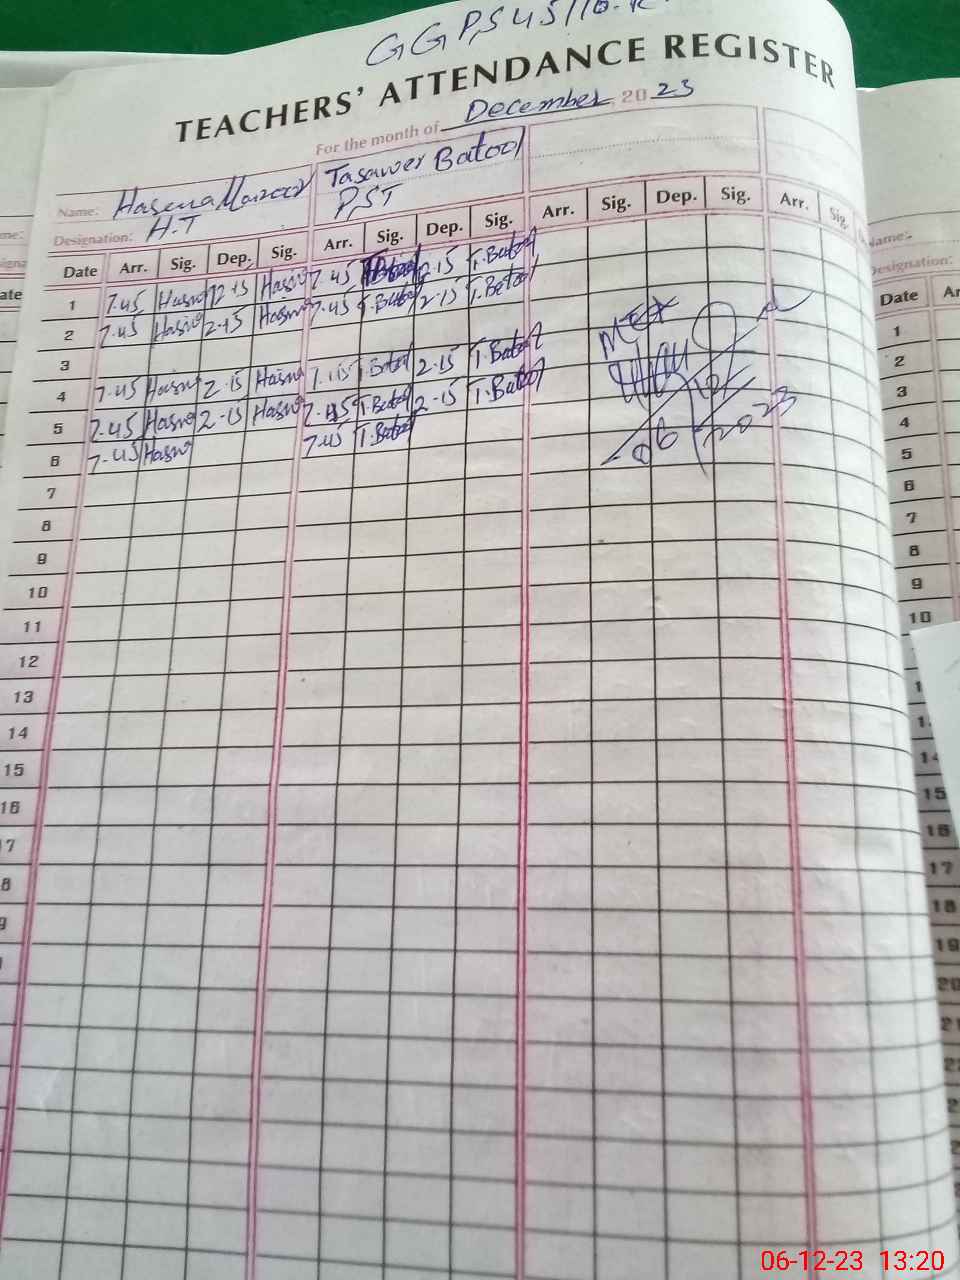 GGPS 45/10.R
TEACHERS' ATTENDANCE REGISTER
For the month of December 2023
Name: Hasena Tasawer Batool
Designation: H.T PST
Date Arr. Sig. Dep. Sig. Arr. Sig. Dep. Sig. Arr. Sig. Dep. Sig. Arr. Sig.
1 7.45 Hasna 2.15 Hasna 7.45 T.Batool 2.15 T.Batool
2 7.45 Hasna 2.15 Hasna 7.45 T.Batool 2.15 T.Batool
3
4 7.45 Hasna 2.15 Hasna 7.45 T.Batool 2.15 T.Batool
5 7.45 Hasna 2.15 Hasna 7.45 T.Batool 2.15 T.Batool
6 7.45 Hasna 7.45 T.Batool
7
8
9
10
11
12
13
14
15
16
17
8
9
06/12/2023
me:
ate
Name:
Designation:
Date
1
2
3
4
5
6
7
8
9
10
14
15
16
17
18
19
20
21
06-12-23 13:20